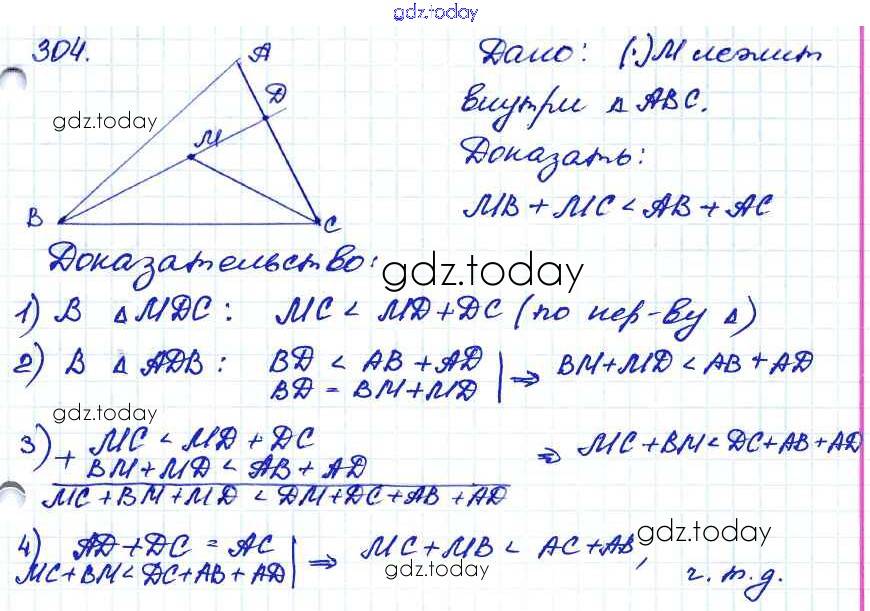 gdz.today
304.
A
D
gdz.today
M
B
C
Дано: (·) M лежит
внутри △ ABC.
Доказать:
MB + MC < AB + AC
Доказательство:
gdz.today
1) В △ MDC : MC < MD + DC (по нер-ву △)
2) В △ ADB : BD < AB + AD | ⇒ BM + MD < AB + AD
BD = BM + MD
gdz.today
3) + MC < MD + DC ⇒ MC + BM < DC + AB + AD
BM + MD < AB + AD
MC + BM + MD < DM + DC + AB + AD
gdz.today
4) AD + DC = AC | ⇒ MC + MB < AC + AB,
MC + BM < DC + AB + AD
gdz.today
ч. т. д.